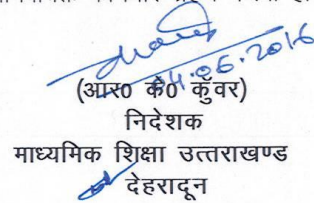 04.06.2016
(आर0 के0 कुँवर)
निदेशक
माध्यमिक शिक्षा उत्तराखण्ड
देहरादून